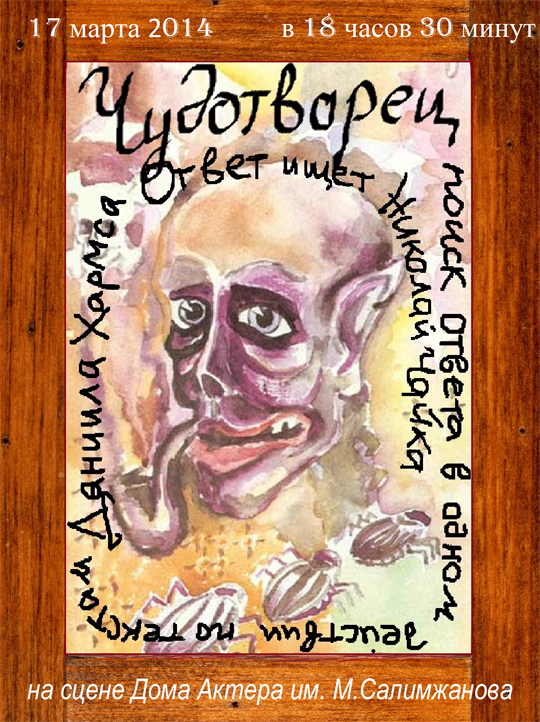 17 марта 2014 в 18 часов 30 минут
Чудотворец
поиск ответа в одном действии по текстам Даниила Хармса
Ответ ищет Николай Чайка
на сцене Дома Актера им. М.Салимжанова